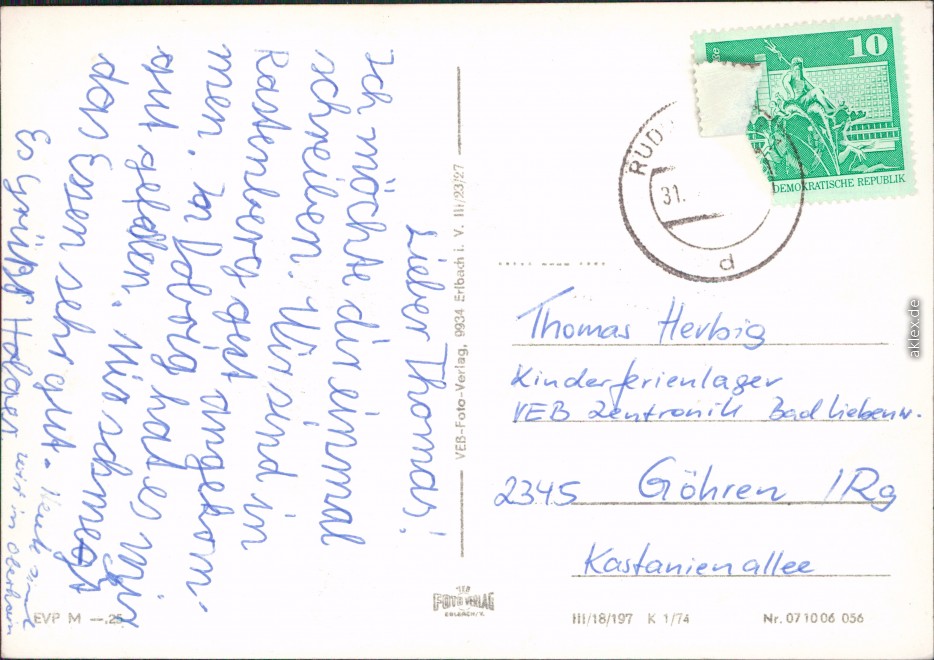 Lieber Thomas!
Ich möchte dir einmal
schreiben. Wir sind in
Rastenberg gest angekom-
men. In Doborg hat es mir
gut gefallen. Mir schmegt
das Essen sehr gut. Heute sind
Es Grüßt Holger wir in Oberhain
VEB-Foto-Verlag, 9934 Erlbach i. V. III/23/27
10
DEMOKRATISCHE REPUBLIK
RUD
31.
d
Thomas Herbig
Kinderferienlager
VEB Zentronik Bad Liebenw.
2345 Göhren /Rg
Kastanienallee
EVP M —.25
FOTO VERLAG
ERLBACH/V.
III/18/197 K 1/74
Nr. 07 10 06 056
aklex.de